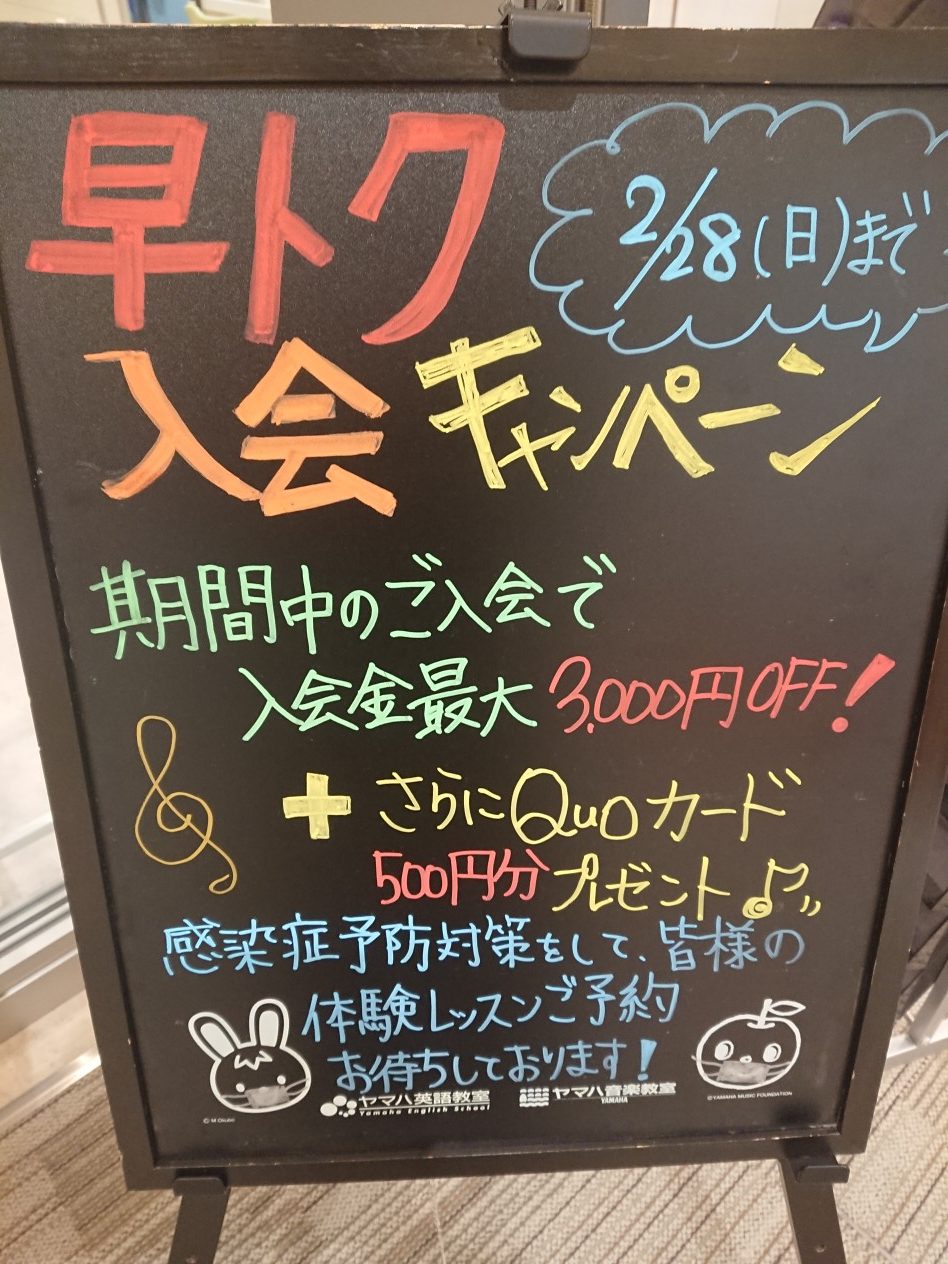 早トク
2/28(日)まで
入会キャンペーン
期間中のご入会で
入会金最大3,000円OFF!
+さらにQUOカード
500円分プレゼント♪
感染症予防対策をして、皆様の
体験レッスンご予約
お待ちしております!
ヤマハ英語教室
Yamaha English School
ヤマハ音楽教室
YAMAHA
© M.Okubo
©YAMAHA MUSIC FOUNDATION